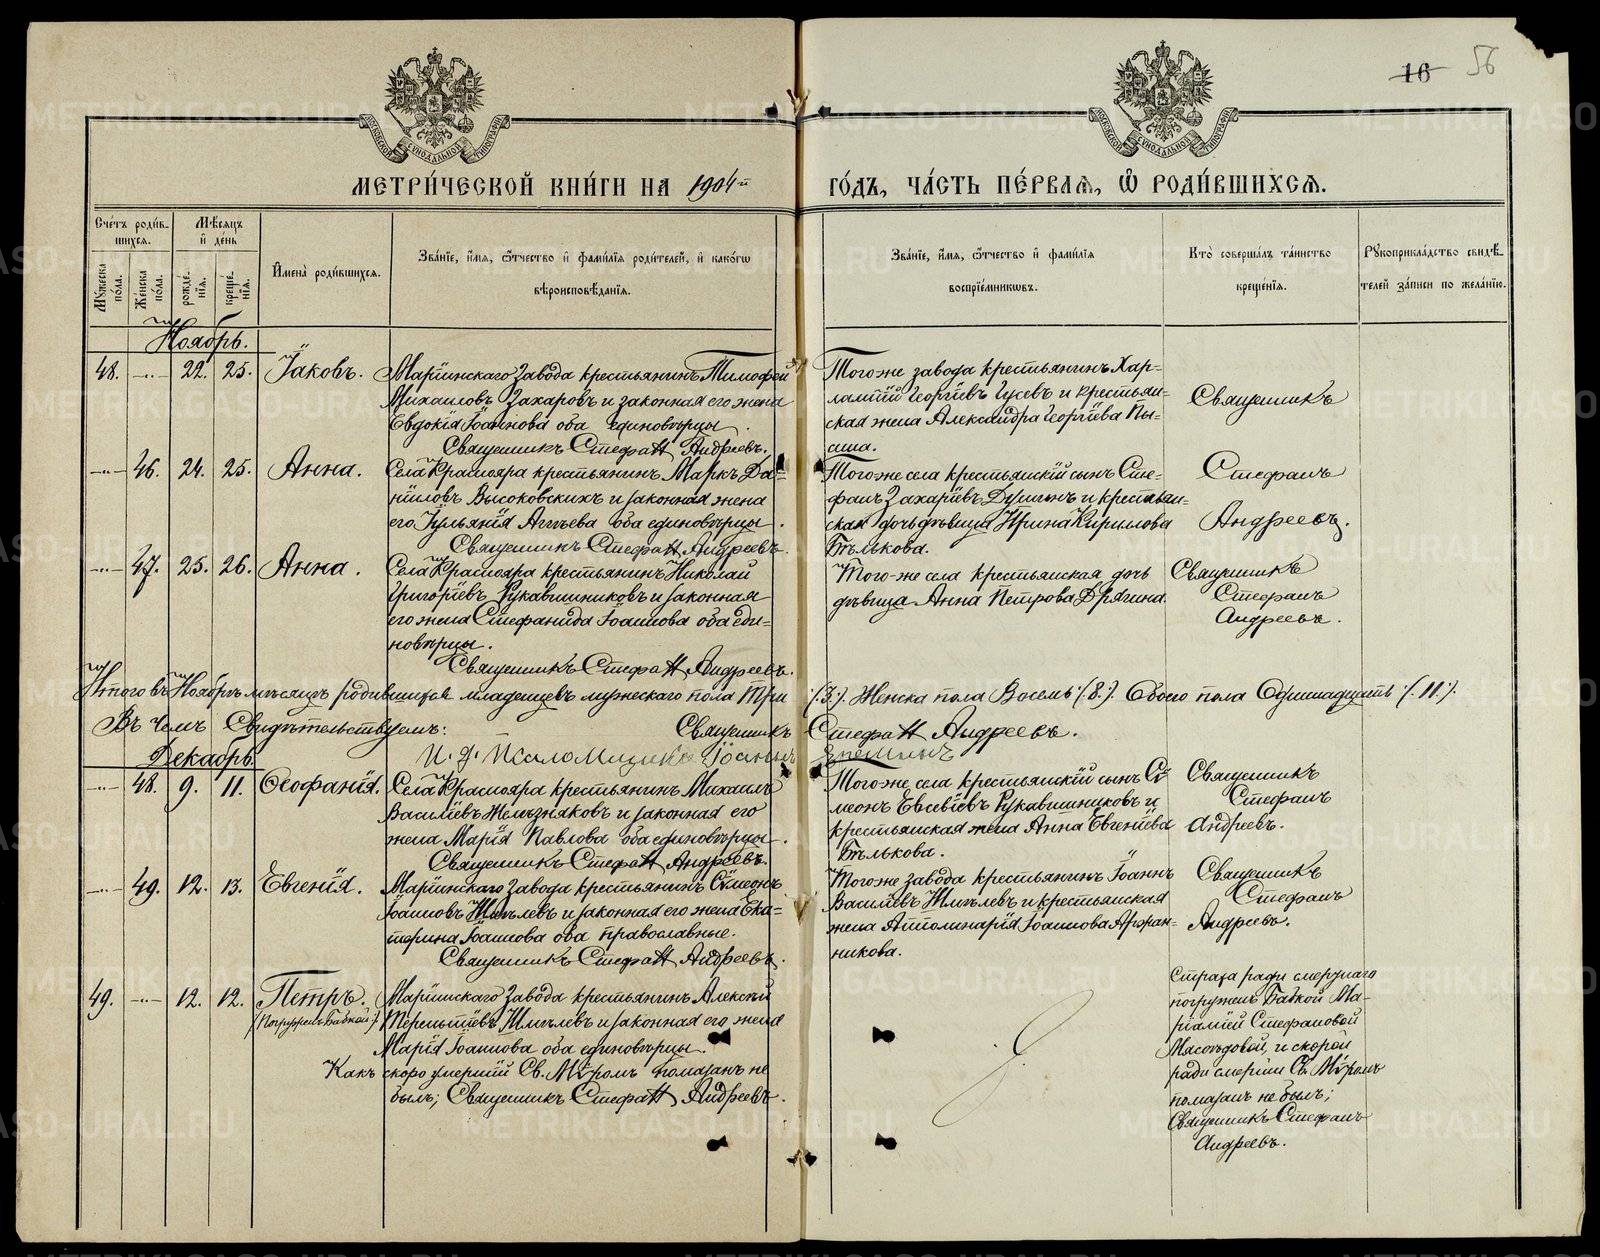 16 56
МОСКОВСКОЙ СѴНОДАЛЬНОЙ ТИПОГРАФІИ
МОСКОВСКОЙ СѴНОДАЛЬНОЙ ТИПОГРАФІИ
МЕТРИ́ЧЕСКОЙ КНИ́ГИ НА 1904й
ГО́ДЪ, ЧА́СТЬ ПЕ́РВАѦ, Ѽ РОДИ́ВШИХСѦ.
Сче́тъ роди́в-
шихся.
Мѣ́сяцъ
и҆ де́нь
Му́жеска
по́ла.
Же́нска
по́ла.
рожде́-
нїѧ.
креще́-
нїѧ.
И҆мена̀ роди́вшихся.
Зва́нїе, и҆́мѧ, ѻ҆́тчество и҆ фамі́лїѧ роди́телей, и҆ како́гѡ
вѣроисповѣ́данїѧ.
Зва́нїе, и҆́мѧ, ѻ҆́тчество и҆ фамі́лїѧ
воспрїе́мникѡвъ.
Кто̀ соверша́лъ та́инство
креще́нїѧ.
Рꙋкоприкла́дство свидѣ́-
телей за́писи по жела́нїю.
Ноябрь.
48. —"— 22. 25. Іаковъ.
Маріинскаго завода крестьянинъ Тимофей
Михаиловъ Захаровъ и законная его жена
Евдокія Іоаннова оба единовѣрцы.
Священникъ Стефанъ Андреевъ.
Того же завода крестьянинъ Хар-
лампій Георгіевъ Гусевъ и крестьян-
ская жена Александра Георгіева Пь-
Священникъ
—"— 46. 24. 25. Анна.
Села Краснояра крестьянинъ Маркъ Да-
ніиловъ Высоковскихъ и законная жена
его Іуліанія оба единовѣрцы.
Священникъ Стефанъ Андреевъ.
Того же села крестьянскій сынъ Сте-
фанъ Захаріевъ и крестьян-
ская дочь дѣвица Ирина Кирилова
Бѣлькова.
Стефанъ
Андреевъ.
—"— 47. 25. 26. Анна.
Села Краснояра крестьянинъ Николай
Григоріевъ Рукавишниковъ и законная
его жена Стефанида Іоаннова оба еди-
новѣрцы.
Священникъ Стефанъ Андреевъ.
Того-же села крестьянская дочь
дѣвица Анна Петрова Дрягина.
Священникъ
Стефанъ
Андреевъ.
Итого въ Ноябрѣ мѣсяцѣ родившихся младенцевъ мужескаго пола Три (:3:). Женска пола Восемь (:8:). Обоего пола Одиннадцать (:11:).
Въ чемъ Свидѣтельствуемъ: Священникъ Стефанъ Андреевъ.
И. д. Псаломщика Іоаннъ
Декабрь
—"— 48. 9. 11. Ѳеофанія.
Села Краснояра крестьянинъ Михаилъ
Василіевъ Желѣзняковъ и законная его
жена Марія Павлова оба единовѣрцы.
Священникъ Стефанъ Андреевъ.
Того же села крестьянскій сынъ Сѵ-
меонъ Евсевіевъ Рукавишниковъ и
крестьянская жена Анна Евгеніева
Бѣлькова.
Священникъ
Стефанъ
Андреевъ.
—"— 49. 12. 13. Евгенія.
Маріинскаго завода крестьянинъ Сѵмеонъ
Іоанновъ Шмелевъ и законная его жена Ека-
терина Іоаннова оба православные.
Священникъ Стефанъ Андреевъ.
Того же завода крестьянинъ Іоаннъ
Василіевъ Шмелевъ и крестьянская
жена Апполинарія Іоаннова
никова.
Священникъ
Стефанъ
Андреевъ.
49. —"— 12. 12. Петръ.
(Погруженъ бабкой)
Маріинскаго завода крестьянинъ Алексѣй
Терентіевъ Шмелевъ и законная его жена
Марія Іоаннова оба единовѣрцы.
Какъ скоро умершій Св. Мѵромъ помазанъ не
былъ; Священникъ Стефанъ Андреевъ.
Страха ради смертнаго
погруженъ бабкой Ма-
ріамной Стефановой
и скорой
ради смерти Св. Мѵромъ
помазанъ не былъ;
Священникъ Стефанъ
Андреевъ.
METRIKI.GASO-URAL.RU